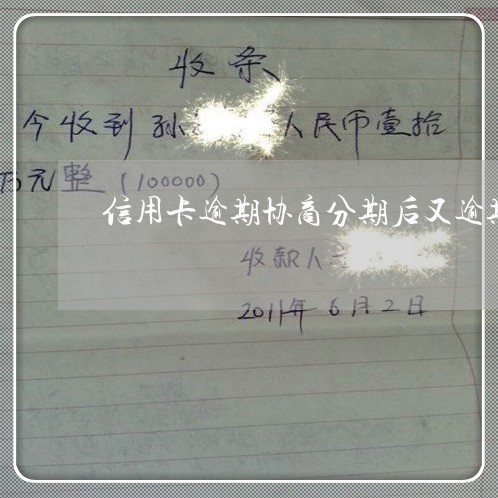 收条
今收到孙 人民币壹拾
万元整（100000）
信用卡逾期协商分期后又逾期
收款人
2011年6月2日